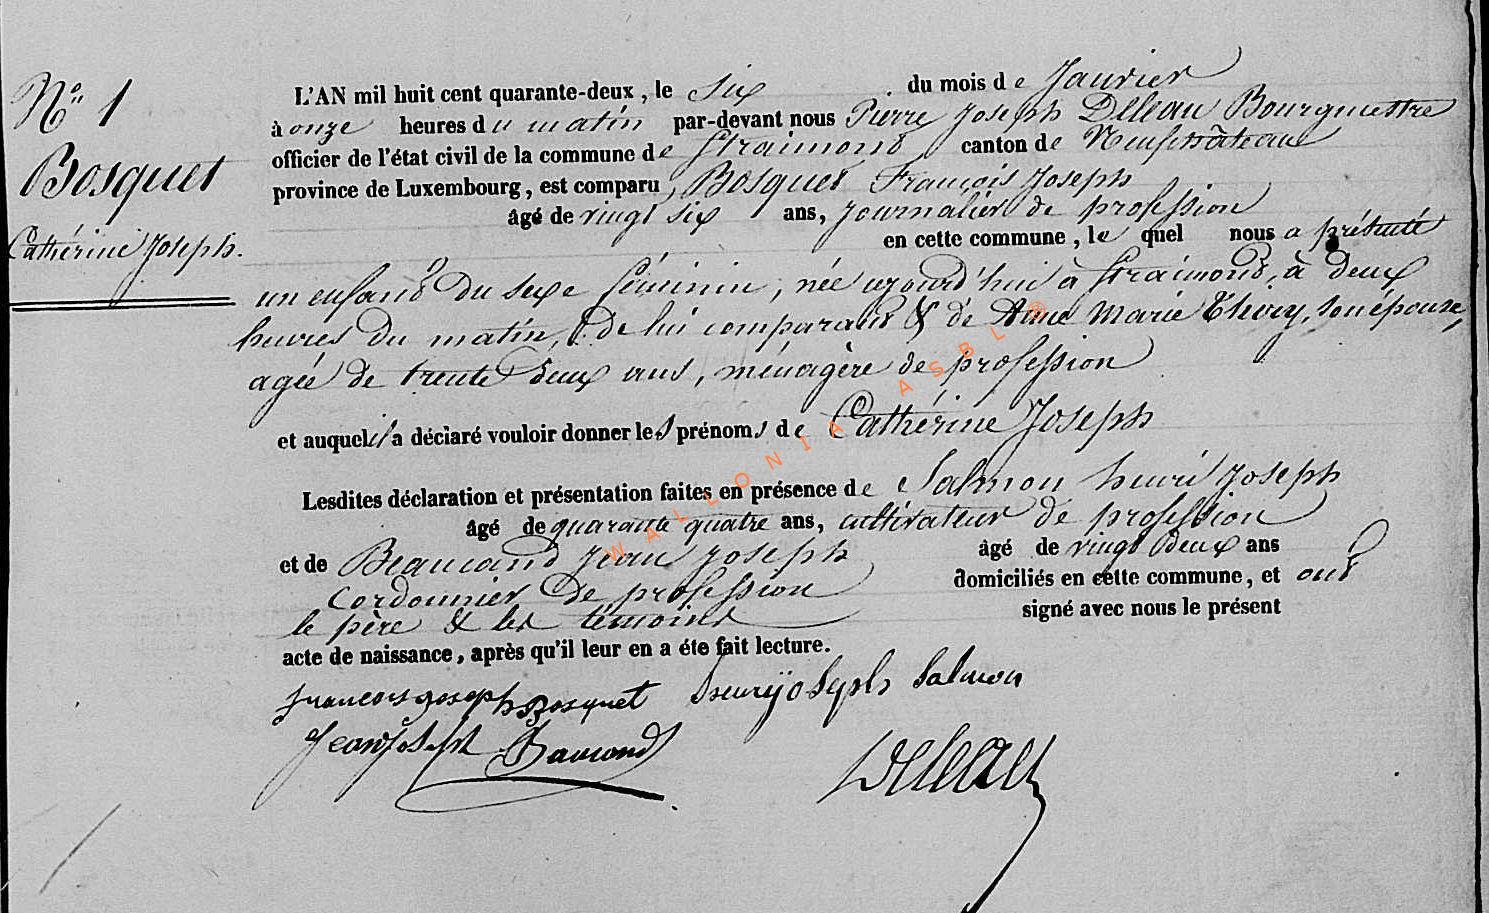 N° 1
Bosquet
Cathérine Joseph.
L'AN mil huit cent quarante-deux, le six du mois de Janvier
à onze heures du matin par-devant nous Pierre Joseph Deleau Bourgmestre
officier de l'état civil de la commune de Straimond canton de Neufchâteau
province de Luxembourg, est comparu Bosquet François Joseph
âgé de vingt six ans, journalier de profession
en cette commune, le quel nous a présenté
un enfant du sexe féminin, née aujourd'hui à Straimond, à deux
heures du matin, de lui comparant & de Anne Marie Thiry, son épouse,
agée de trente deux ans, ménagère de profession
et auquel il a déclaré vouloir donner les prénoms de Cathérine Joseph
Lesdites déclaration et présentation faites en présence de Salmon henri Joseph
âgé de quarante quatre ans, cultivateur de profession
et de Beaucand Jean Joseph âgé de vingt deux ans
cordonnier de profession domiciliés en cette commune, et ont
le père & les témoins signé avec nous le présent
acte de naissance, après qu'il leur en a éte fait lecture.
francois joseph Bosquet henry joseph Salmon
Jean Joseph Deleau
WALLONIA ASBL ®